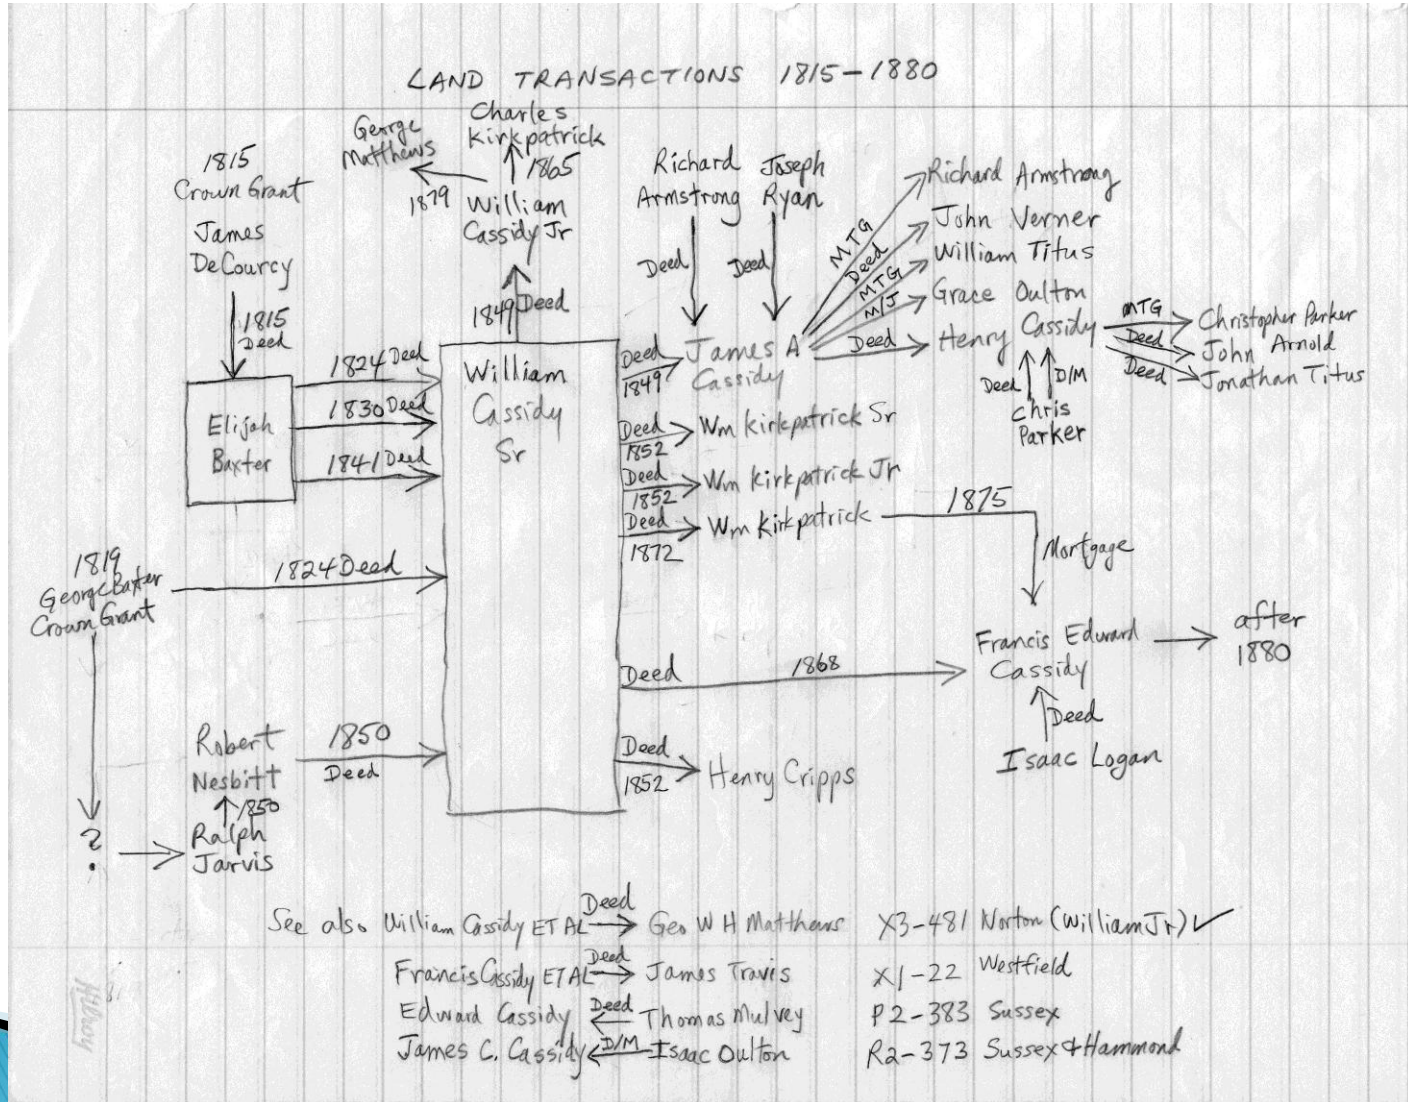 LAND TRANSACTIONS 1815-1880
George
Matthews
1879
Charles
Kirkpatrick
1865
William
Cassidy Jr
1849 Deed
1815
Crown Grant
James
DeCourcy
1815
Deed
Elijah
Baxter
1824 Deed
1830 Deed
1841 Deed
William
Cassidy
Sr
1819
George Baxter
Crown Grant
1824 Deed
?
Ralph
Jarvis
1850
Robert
Nesbitt
1850
Deed
Richard
Armstrong
Deed
Joseph
Ryan
Deed
Deed
1849
James A
Cassidy
MTG
Richard Armstrong
Deed
John Verner
MTG
William Titus
M/J
Grace Oulton
Deed
Henry Cassidy
MTG
Christopher Parker
Deed
John Arnold
Deed
Jonathan Titus
Deed
D/M
Chris
Parker
Deed
1852
Wm Kirkpatrick Sr
Deed
1852
Wm Kirkpatrick Jr
Deed
1872
Wm Kirkpatrick
1875
Mortgage
Deed
1868
Francis Edward
Cassidy
after
1880
Deed
Isaac Logan
Deed
1852
Henry Cripps
See also William Cassidy ET AL Deed Geo W H Matthews X3-481 Norton (William Jr) ✓
Francis Cassidy ET AL Deed James Travis X1-22 Westfield
Edward Cassidy Deed Thomas Mulvey P2-383 Sussex
James C. Cassidy D/M Isaac Oulton R2-373 Sussex & Hammond